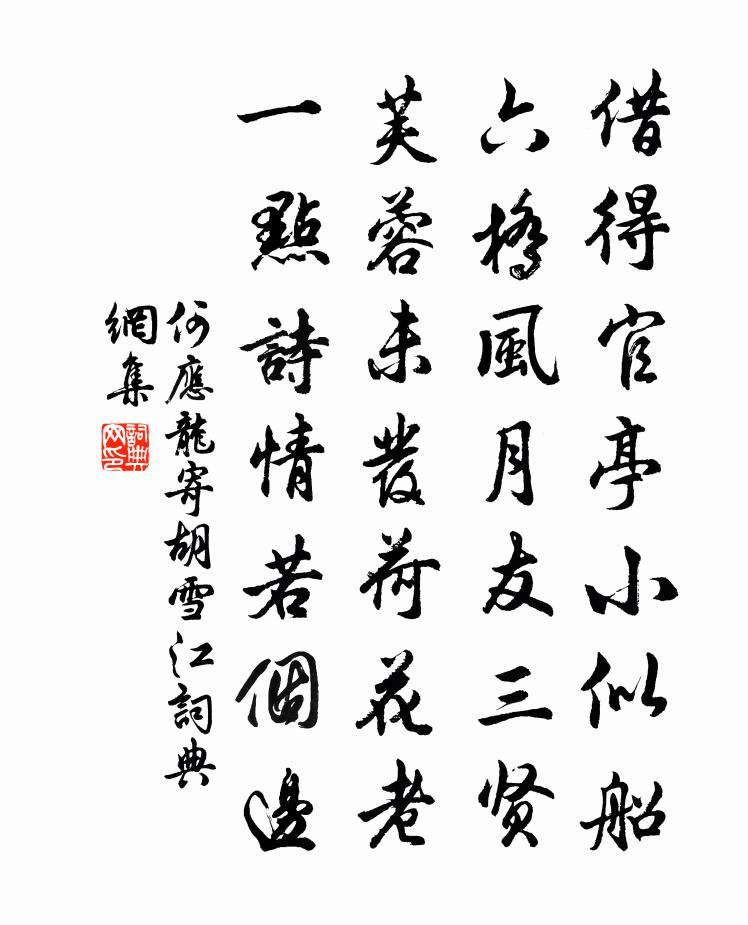 借得官亭小似船
六橋風月友三贤
芙蓉未發荷花老
一點詩情若個邊
何應龍寄胡雪江詞典
網集
詞典
网印